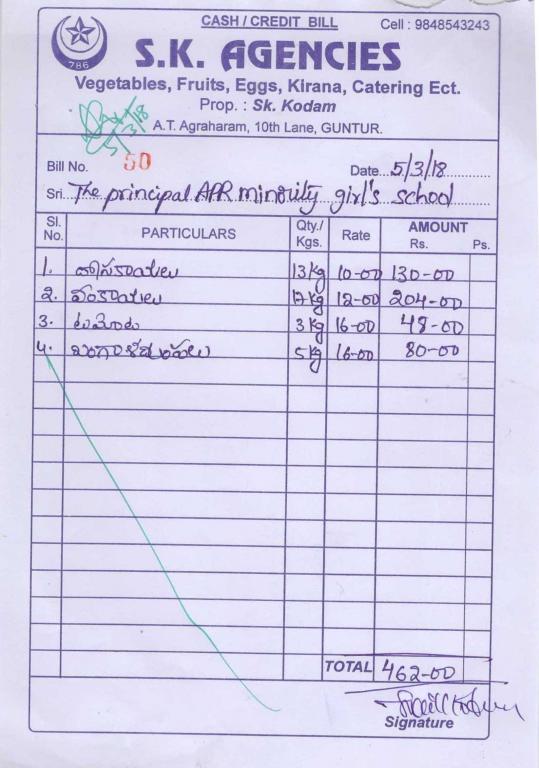 CASH / CREDIT BILL Cell : 9848543243
786
S.K. AGENCIES
Vegetables, Fruits, Eggs, Kirana, Catering Ect.
Prop. : Sk. Kodam
A.T. Agraharam, 10th Lane, GUNTUR.
5/3/18
Bill No. 50 Date 5/3/18
Sri. The principal APR minority girl's school
Sl. No. PARTICULARS Qty./ Kgs. Rate AMOUNT Rs. Ps.
1. దోసకాయలు 13 kg 10-00 130-00
2. వంకాయలు 17 kg 12-00 204-00
3. టమోటు 3 kg 16-00 48-00
4. బంగాళదుంపలు 5 kg 16-00 80-00
TOTAL 462-00
Signature